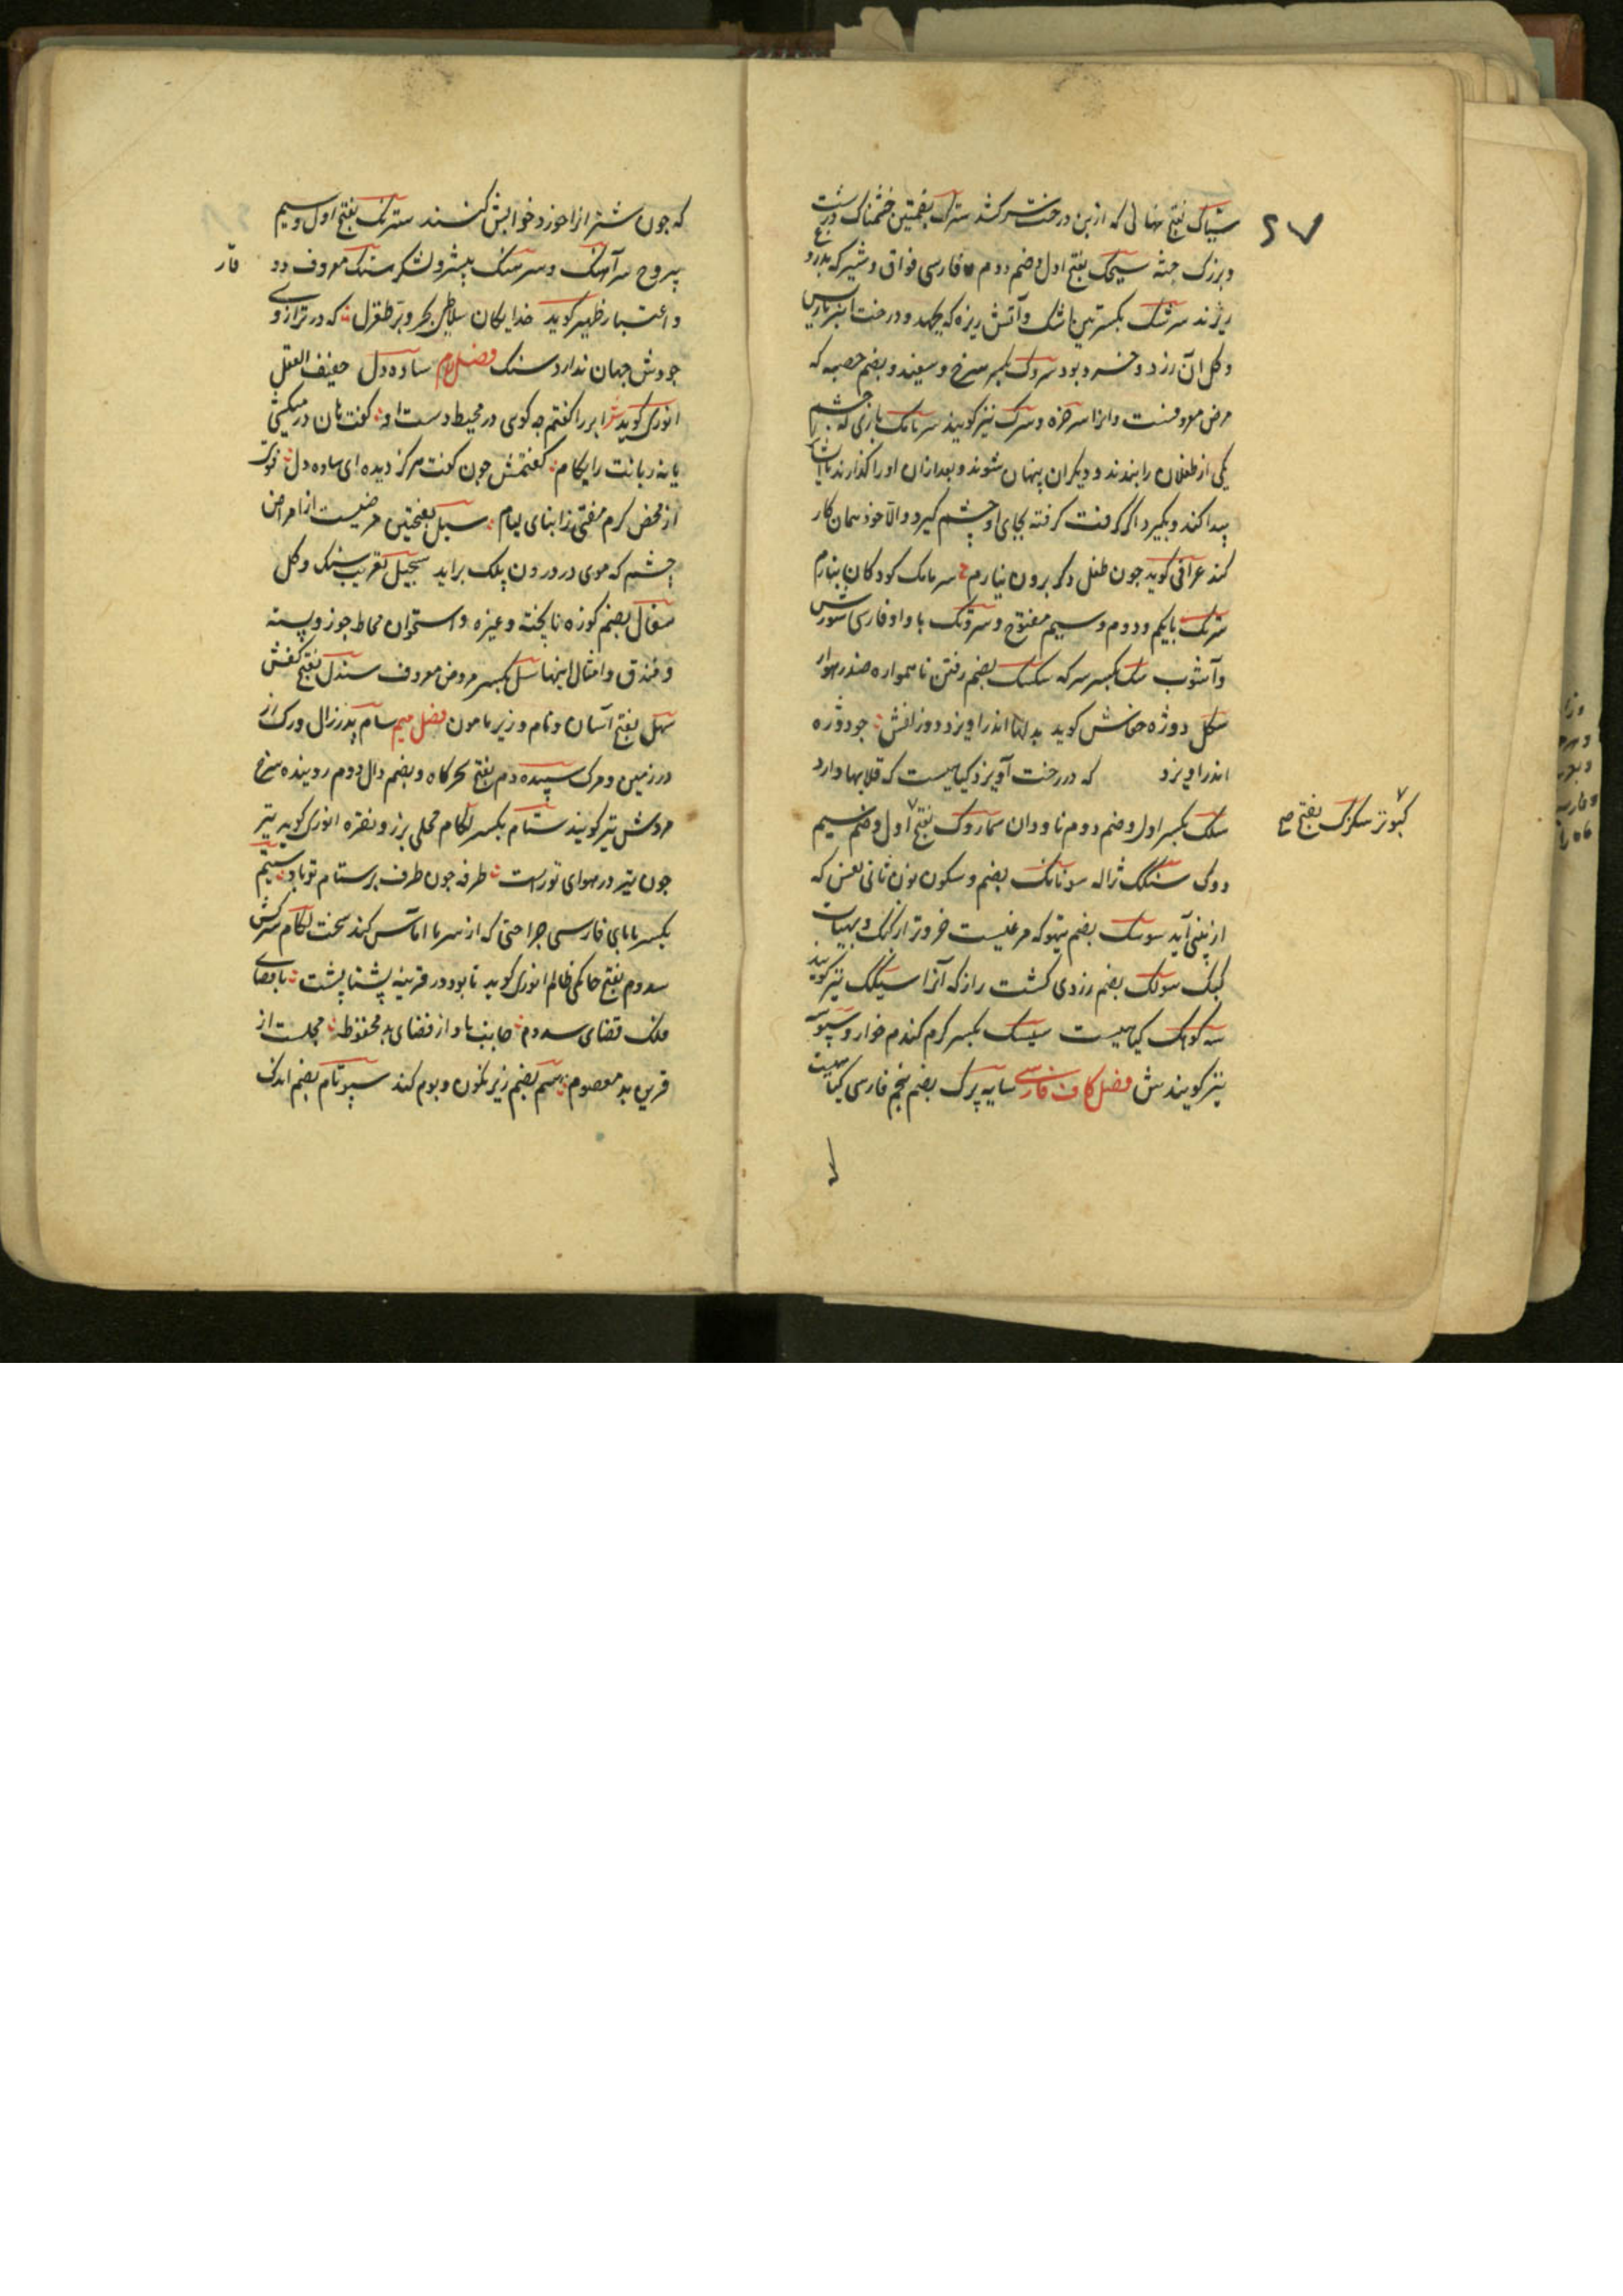 ستاک بفتح نهالی که از بن درخت سرکشد سترک بضمتین خشمناک و درشت
و بزرگ جثه سیحک بفتح اول و ضم دوم فارسی فواق و شیر که بدرو
ریزند سرشک بکسرتین باشک و آتش ریزه که بجهد و درخت انبرباریس
و کل آن زرد و خسرو بود سروک بکسر سرخ و سفید و بضم حصبه که
مرض معروفست و انرا سرخزه و سرک نیز کویند سرمامک بازی که چشم
یکی از طفلان را ببندند و دیکران پنهان شوند و بعد ازان او را کذارند تا ایشان را
پیدا کند و بکیرد اکر کرفت کرفته بجای او چشم کیرد و الا خود همان کار
کند عراقی کوید چون طفل دکر برون نیارم سرمامک کودکان نبازم
سرنک بایکم و دوم و سیم مفتوح و سروتک با واو فارسی شورش
و آشوب سک بکسر سرکه سکسک بضم رفتن ناهمواره ضد رهوار
سکل دوژه خفاش کوید بدلها اندر آویزد دو زلفش چو دوژه
اندر آویزد که در درخت آویزد کیاهیست که قلابها دارد
سلک بکسر اول و ضم دوم ناودان سماروک بفتح اول و ضم سیم
کبوتر سکزک بفتح صح
دوک سنکک ژاله سونانک بضم و سکون نون ثانی نفس که
از بینی آید سوسک بضم تیهو که مرغیست خردتر از کبک و بهیات
کبک سولک بضم زردی کشت را ز که آنرا سیلک نیز کویند
سه کوهک کیاهیست سیسک بکسر کرم کندم خوار و سپوسه
نیز کویندش فصل کاف فارسی سایه پرک بضم پنجم فارسی کیاهیست
که چون شتر انرا خورد خوابش کنند سترنک بفتح اول و سیم
یبروح سرآهنک و سرهنک پیشرو لشکر سنک معروف و وقار
و اعتبار ظهیر کوید خدایکان سلاطین بحر و بر طغرل که در ترازوی
جودش جهان ندارد سنک فصل لام ساده دل خفیف العقل
انوری کوید ابر را کفتم چه کوی در محیط دست او کفت هان درمیکشی
یا نه زبانت را بکام کفتمش چون کفت هرکز دیده ای ساده دل
از محض کرم مفتی ز ابنای لیام سبل بفتحتین مرضیست از امراض
چشم که موی در درون پلک براید سجیل تعریب سنک و کل
سفال بضم کوزه ناپخته و غیره و استخوان محاط جوز و پسته
و فندق و امثال اینها سل بکسر مرض معروف سندل بفتح کفش
سهل بفتح آسان و نام وزیر مامون فصل میم سام پدر زال و رک زر
در زمین و مرک سپیده دم بفتح سحرکاه و بضم دال دوم روینده سرخ
مردش تیر کویند ستام بکسر لکام محلی بزر و نقره انوری کوید تیر
چون تیر در هوای تو راست طرفه چون طرف بر ستام تو باد ستیم
بکسر با یای فارسی جراحتی که از سرما اماس کند سخت لکام سرکش
سدوم بفتح حاکمی ظالم انوری کوید تا بود در قرینه پشتا پشت با قضای
فلک قضای سدوم جانبت باد از قضای بد محفوظ مجلست از
قرین بد معصوم سم بضم زیر نکون و بوم کند سپوتام بضم اندک